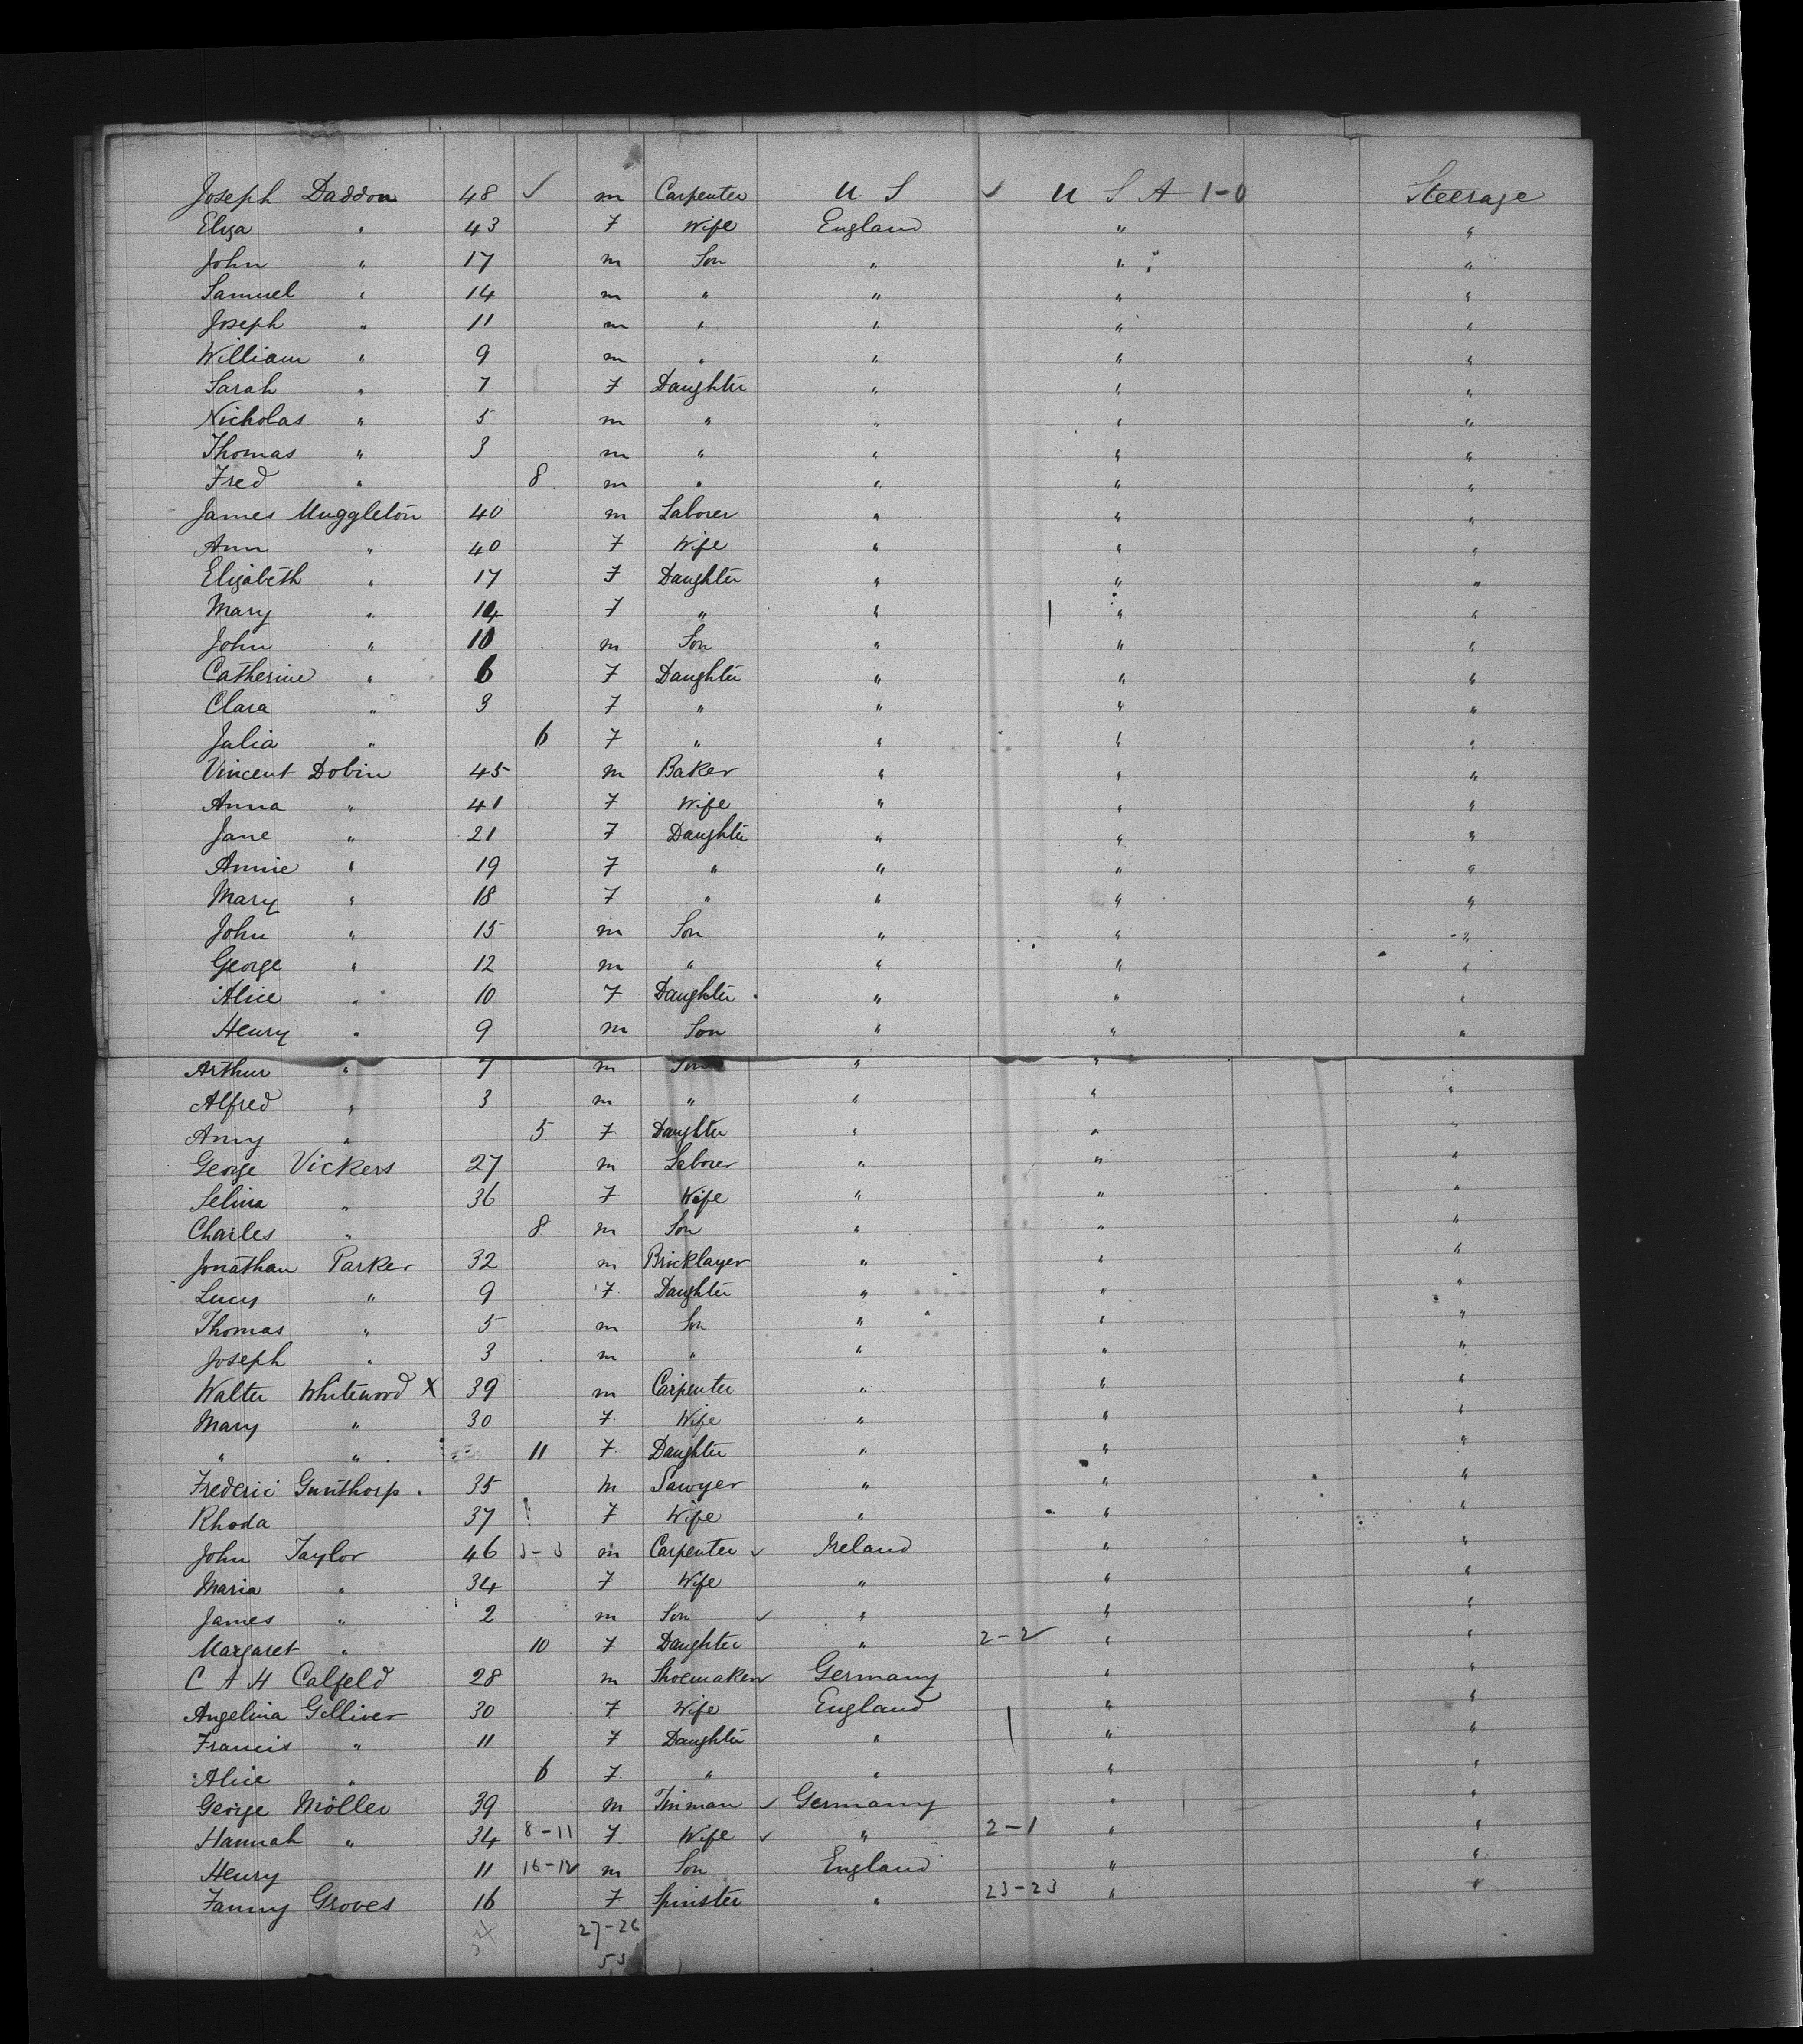 Joseph Daddon 48 ✓ m Carpenter U S ✓ U S A 1-0 Steerage
Eliza " 43 F Wife England " "
John " 17 m Son " " "
Samuel " 14 m " " " "
Joseph " 11 m " " " "
William " 9 m " " " "
Sarah " 7 F Daughter " " "
Nicholas " 5 m " " " "
Thomas " 3 m " " " "
Fred " 8 m " " " "
James Muggleton 40 m Laborer " " "
Ann " 40 F Wife " " "
Elizabeth " 17 F Daughter " " "
Mary " 14 F " " " "
John " 10 m Son " " "
Catherine " 6 F Daughter " " "
Clara " 3 F " " " "
Julia " 6 F " " " "
Vincent Dobin 45 m Baker " " "
Anna " 41 F Wife " " "
Jane " 21 F Daughter " " "
Annie " 19 F " " " "
Mary " 18 F " " " "
John " 15 m Son " " "
George " 12 m " " " "
Alice " 10 F Daughter " " "
Henry " 9 m Son " " "
Arthur " 7 m Son " "
Alfred " 3 m " " " "
Amy " 5 F Daughter " " "
George Vickers 27 m Laborer " " "
Selina " 36 F Wife " " "
Charles " 8 m Son " " "
Jonathan Parker 32 m Bricklayer " " "
Lucy " 9 F Daughter " " "
Thomas " 5 m Son " " "
Joseph " 3 m " " " "
Walter Whitewood X 39 m Carpenter " " "
Mary " 30 F Wife " " "
" " 11 F Daughter " " "
Frederic Gunthorp 35 m Sawyer " " "
Rhoda 37 F Wife " " "
John Taylor 46 3-3 m Carpenter ✓ Ireland " "
Maria " 34 F Wife " " "
James " 2 m Son ✓ " " "
Margaret " 10 F Daughter " 2-2 " "
C A H Calfeld 28 m Shoemaker ✓ Germany " "
Angelina Gilliver 30 F Wife England " "
Francis " 11 F Daughter " " "
Alice " 6 F " " " "
George Möller 39 m Tinman ✓ Germany " "
Hannah " 34 8-11 F Wife ✓ " 2-1 " "
Henry 11 16-12 m Son England " "
Fanny Groves 16 F Spinster " 23-23 " "
27-26
53